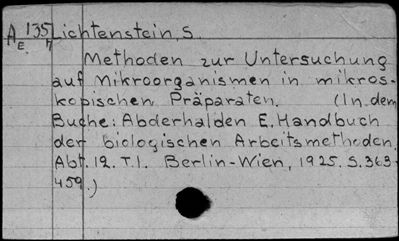 A 135 Lichtenstein, S.
E 7
Methoden zur Untersuchung
auf Mikroorganismen in mikros-
kopischen Präparaten. (In dem
Buche: Abderhalden E. Handbuch
der biologischen Arbeitsmethoden.
Abt. 12. T. 1. Berlin-Wien, 1925. S. 363-
459.)